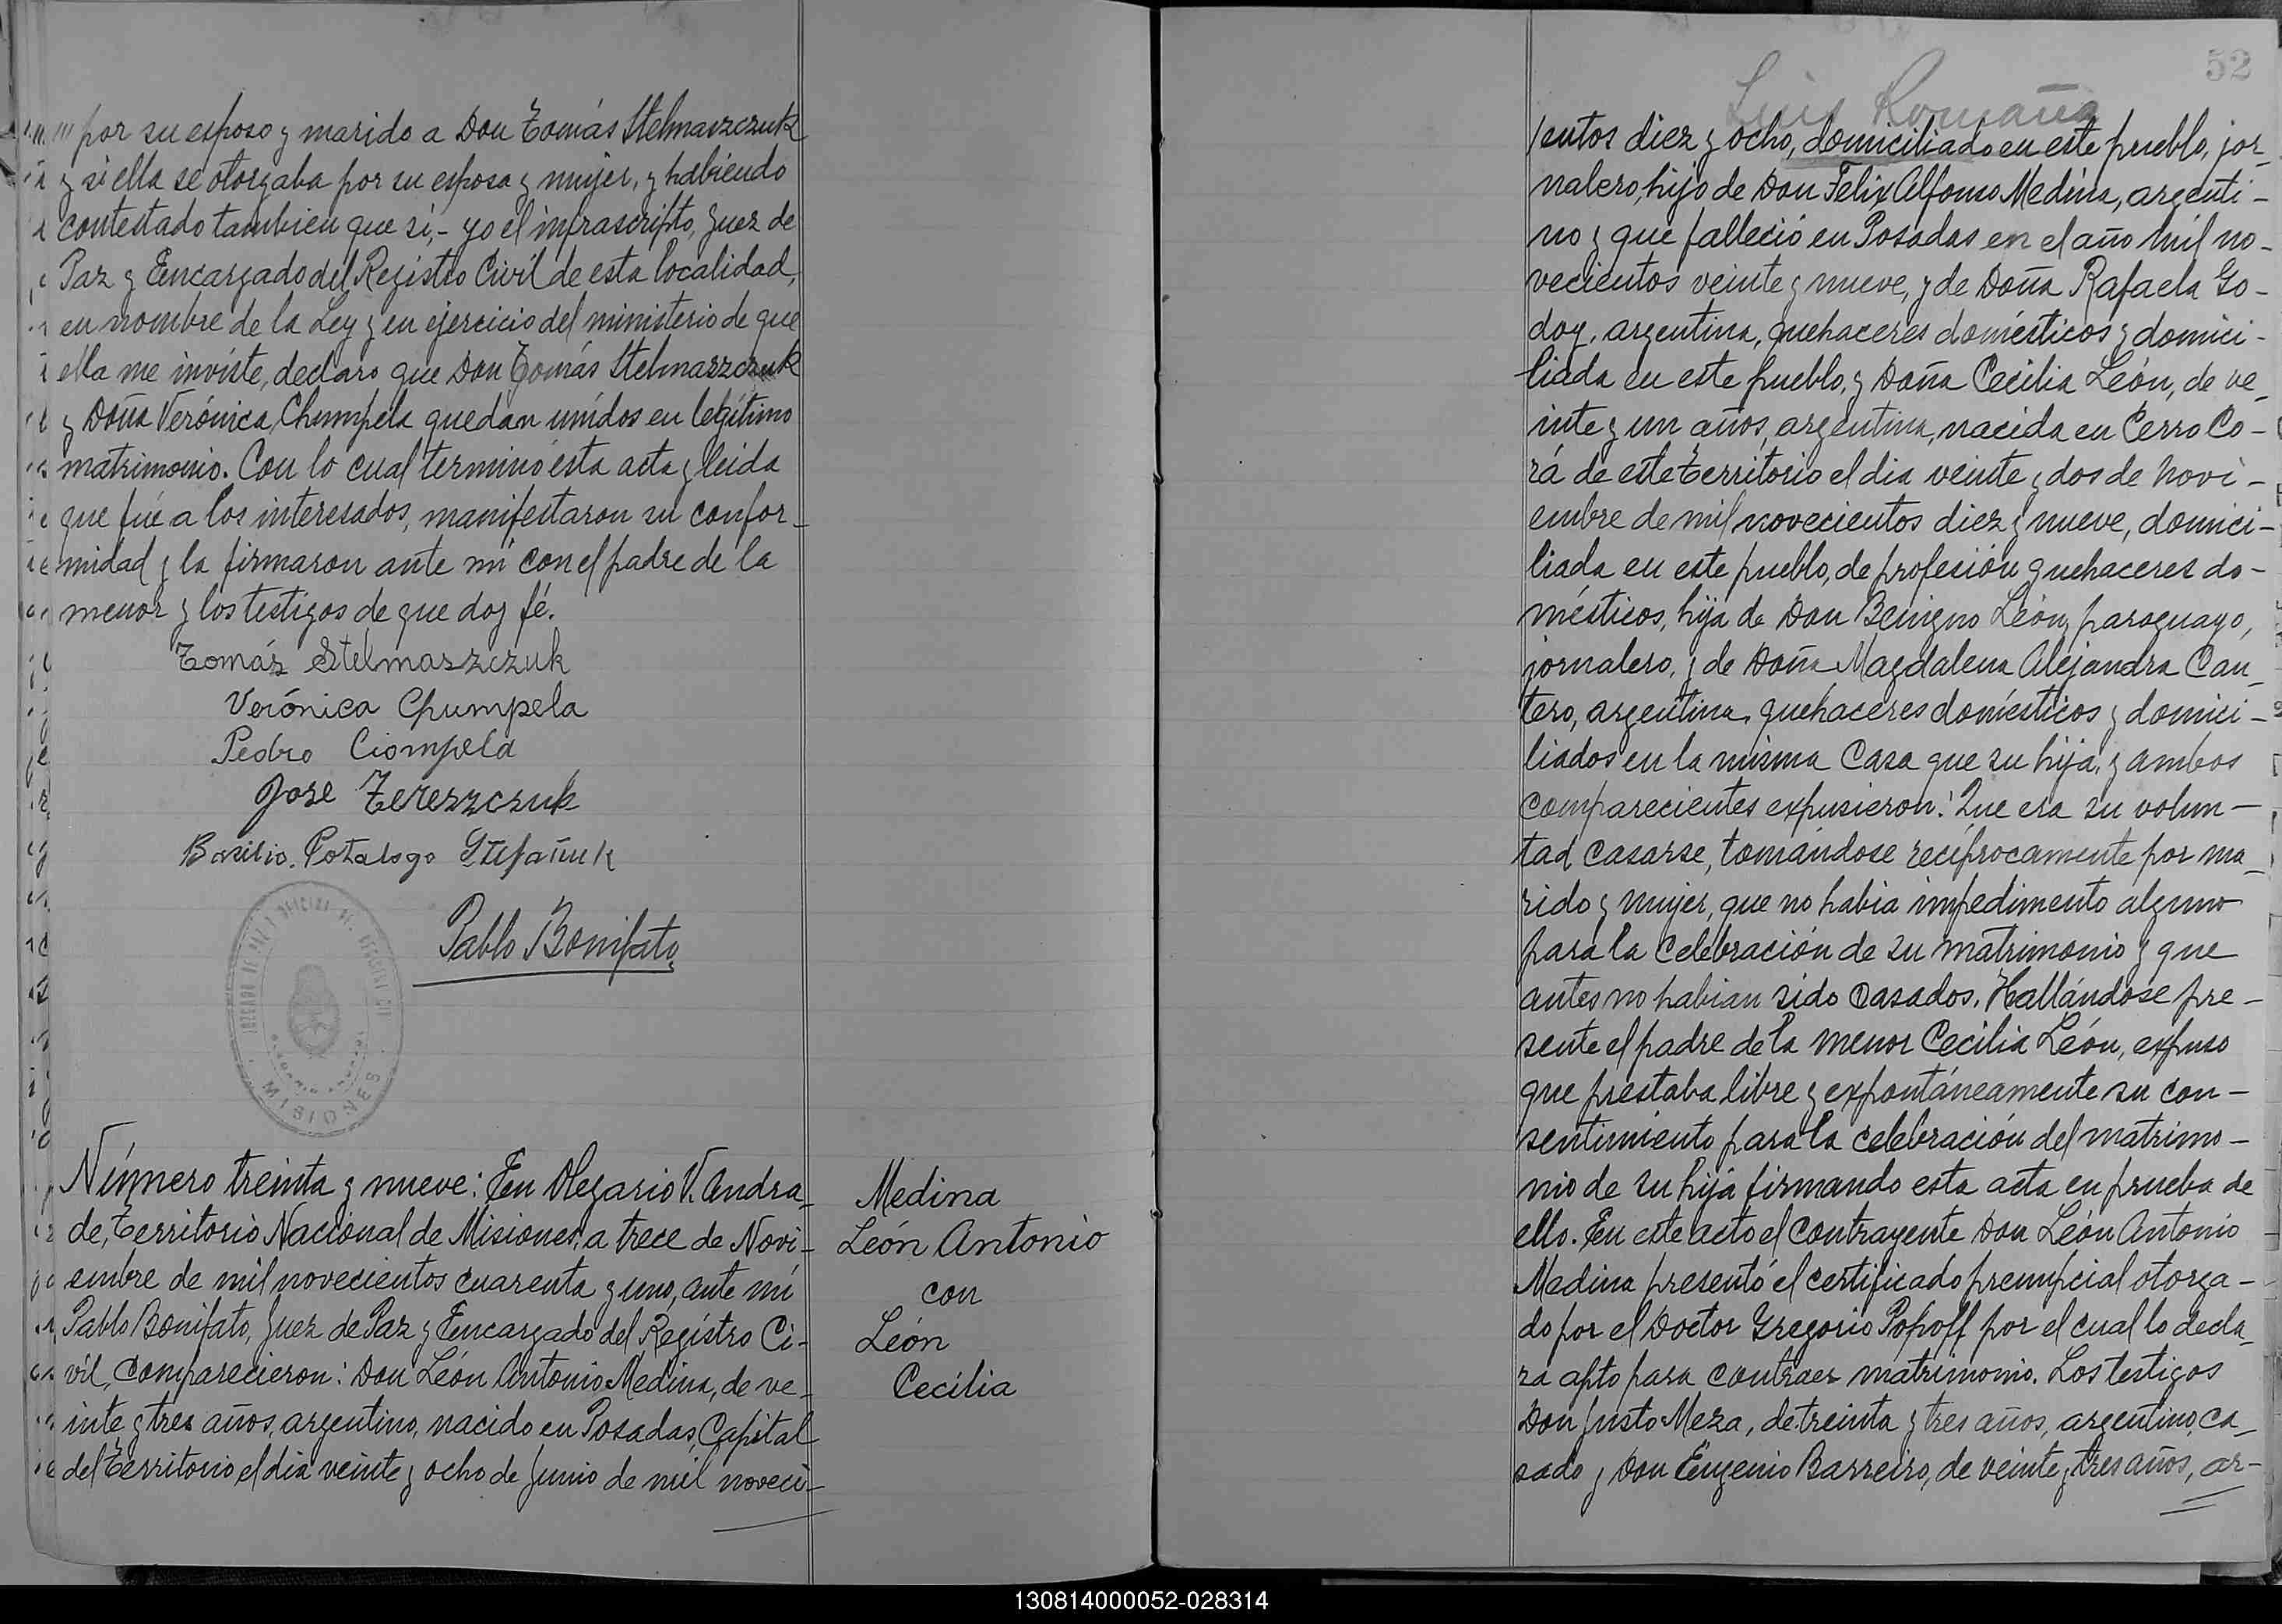 por su esposo y marido a Don Tomás Stelmaszczuk
y si ella se otorgaba por su esposa y mujer, y habiendo
contestado tambien que si,- yo el infrascripto, Juez de
Paz y Encargado del Registro Civil de esta localidad,
en nombre de la Ley y en ejercicio del ministerio de que
ella me inviste, declaro que Don Tomás Stelmaszczuk
y Doña Verónica Chumpela quedan unidos en legítimo
matrimonio. Con lo cual terminó esta acta y leida
que fué a los interesados, manifestaron su confor-
midad y la firmaron ante mi con el padre de la
menor y los testigos de que doy fé.
Tomás Stelmaszczuk
Verónica Chumpela
Pedro Ciompela
Jose Tereszczuk
Basilio Stefañuk
Pablo Bonifato
MISIONES
Número treinta y nueve: En Olegario V. Andra-
de, Territorio Nacional de Misiones, a trece de Novi-
embre de mil novecientos cuarenta y uno, ante mi
Pablo Bonifato, Juez de Paz y Encargado del Registro Ci-
vil, comparecieron: Don León Antonio Medina, de ve-
inte y tres años, argentino, nacido en Posadas, Capital
del Territorio el dia veinte y ocho de Junio de mil noveci-
Medina
León Antonio
con
León
Cecilia
52
Luis Romaña
/entos diez y ocho, domiciliado en este pueblo, jor-
nalero, hijo de Don Felix Alfonso Medina, argenti-
no y que falleció en Posadas en el año mil no-
vecientos veinte y nueve, y de Doña Rafaela Go-
doy, argentina, quehaceres domésticos y domici-
liada en este pueblo, y Doña Cecilia León, de ve-
inte y un años, argentina, nacida en Cerro Co-
rá de este Territorio el dia veinte y dos de Novi-
embre de mil novecientos diez y nueve, domici-
liada en este pueblo, de profesión quehaceres do-
mésticos, hija de Don Benigno León, paraguayo,
jornalero, y de Doña Magdalena Alejandra Can-
tero, argentina, quehaceres domésticos y domici-
liados en la misma casa que su hija, y ambos
comparecientes expusieron: Que era su volun-
tad casarse, tomándose recíprocamente por ma-
rido y mujer, que no habia impedimento alguno
para la celebración de su matrimonio y que
antes no habian sido casados. Hallándose pre-
sente el padre de la menor Cecilia León, expuso
que prestaba libre y expontáneamente su con-
sentimiento para la celebración del matrimo-
nio de su hija firmando esta acta en prueba de
ello. En este acto el contrayente Don León Antonio
Medina presentó el certificado prenupcial otorga-
do por el Doctor Gregorio Popoff por el cual lo decla-
ra apto para contraer matrimonio. Los testigos
Don Justo Meza, de treinta y tres años, argentino, ca-
sado y Don Eugenio Barreiro, de veinte y tres años, ar-
130814000052-028314